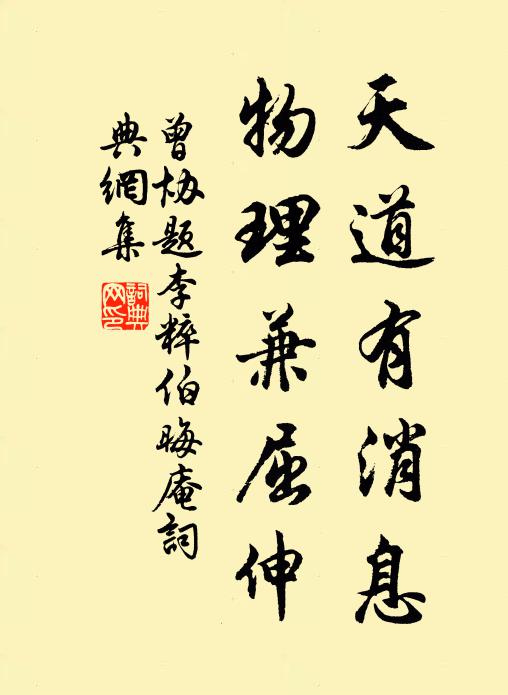 天道有消息
物理兼屈伸
曾协题李粹伯晦庵詞
典網集
詞典
网印